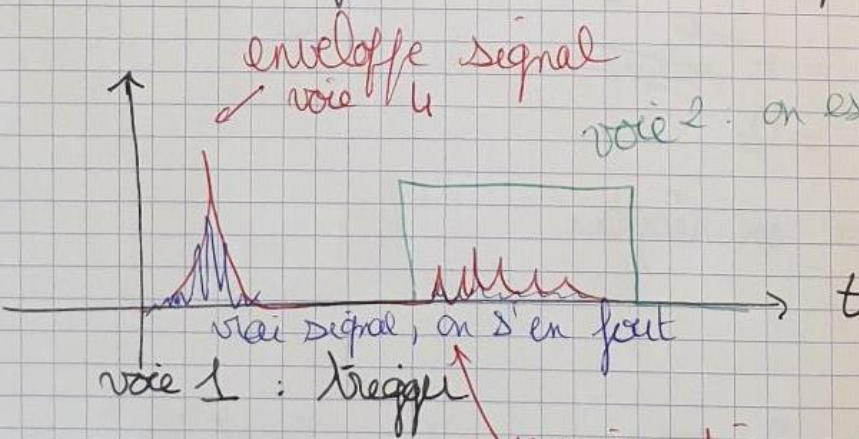 enveloppe signal
voie 4
voie 2 : on es
t
vrai signal, on s'en fout
voie 1 : trigger